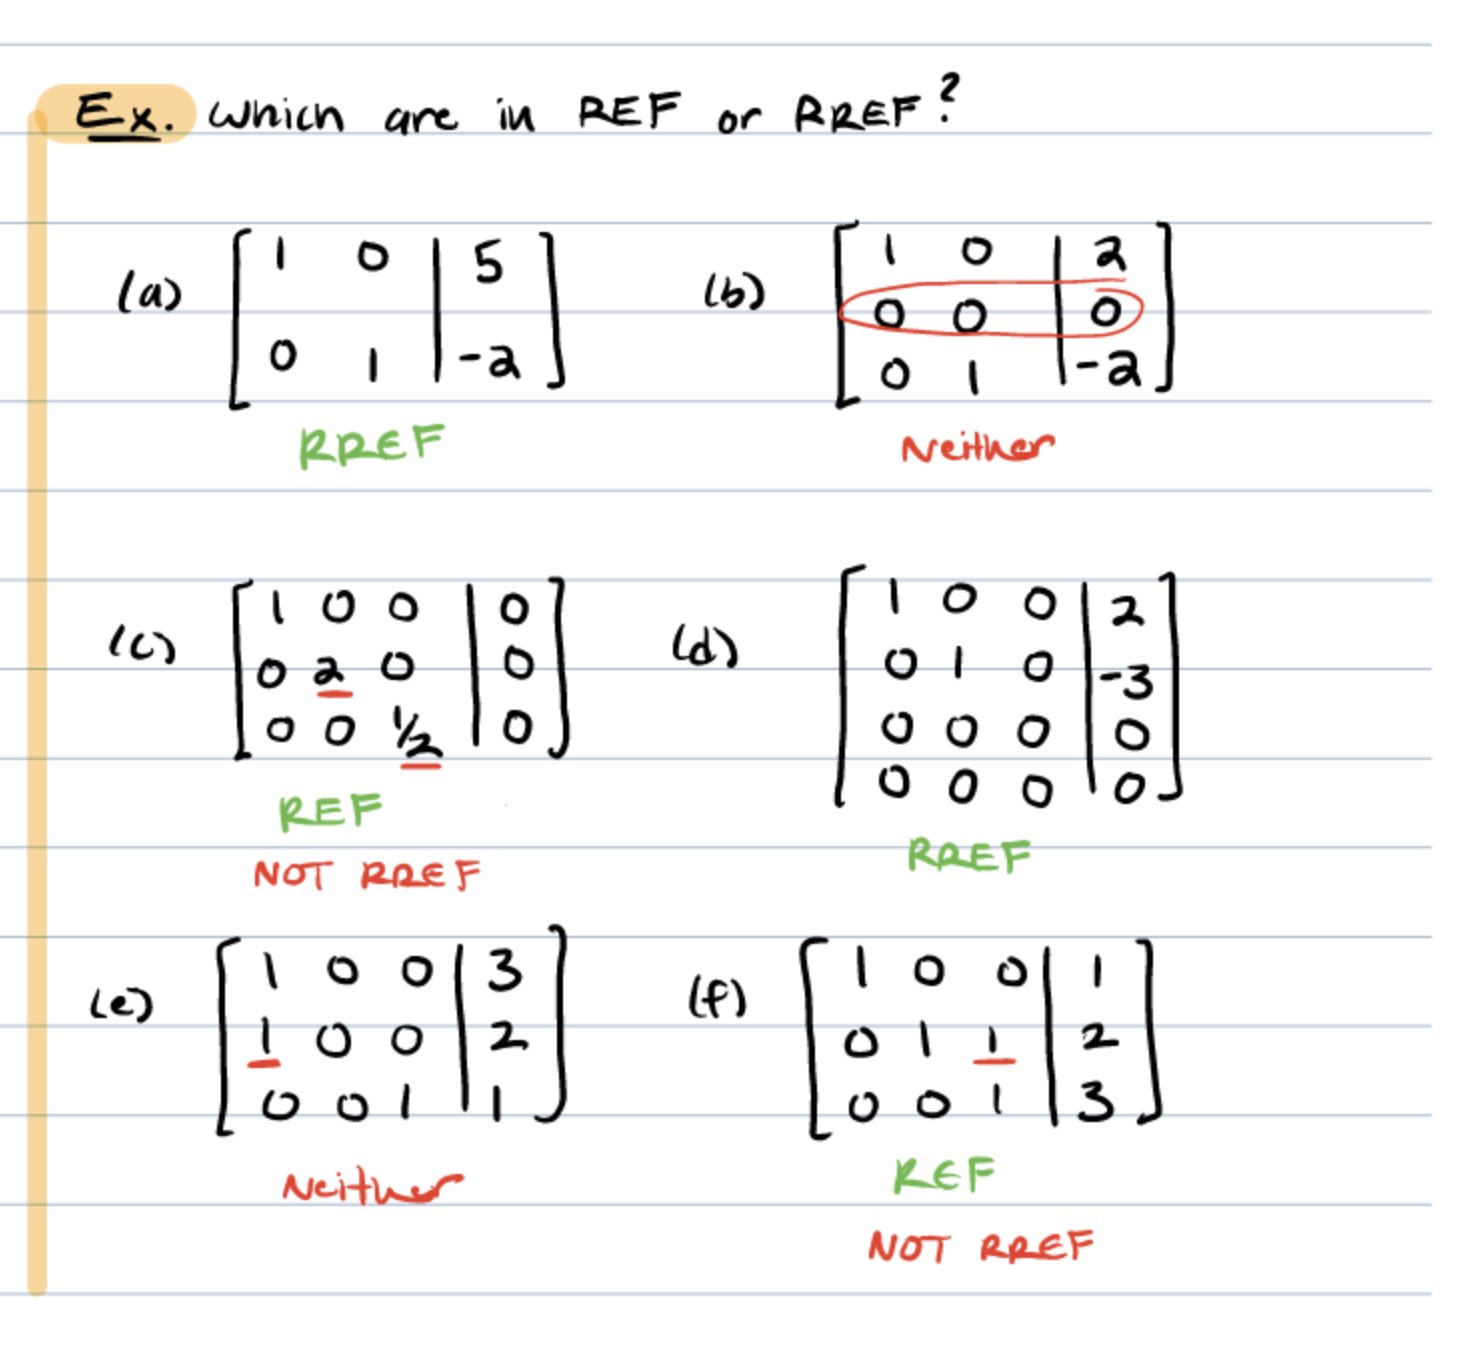 Ex. Which are in REF or RREF?
(a) [ 1 0 | 5 ]
[ 0 1 | -2 ]
RREF
(b) [ 1 0 | 2 ]
[ 0 0 | 0 ]
[ 0 1 | -2 ]
Neither
(c) [ 1 0 0 | 0 ]
[ 0 2 0 | 0 ]
[ 0 0 1/2 | 0 ]
REF
NOT RREF
(d) [ 1 0 0 | 2 ]
[ 0 1 0 | -3 ]
[ 0 0 0 | 0 ]
[ 0 0 0 | 0 ]
RREF
(e) [ 1 0 0 | 3 ]
[ 1 0 0 | 2 ]
[ 0 0 1 | 1 ]
Neither
(f) [ 1 0 0 | 1 ]
[ 0 1 1 | 2 ]
[ 0 0 1 | 3 ]
REF
NOT RREF